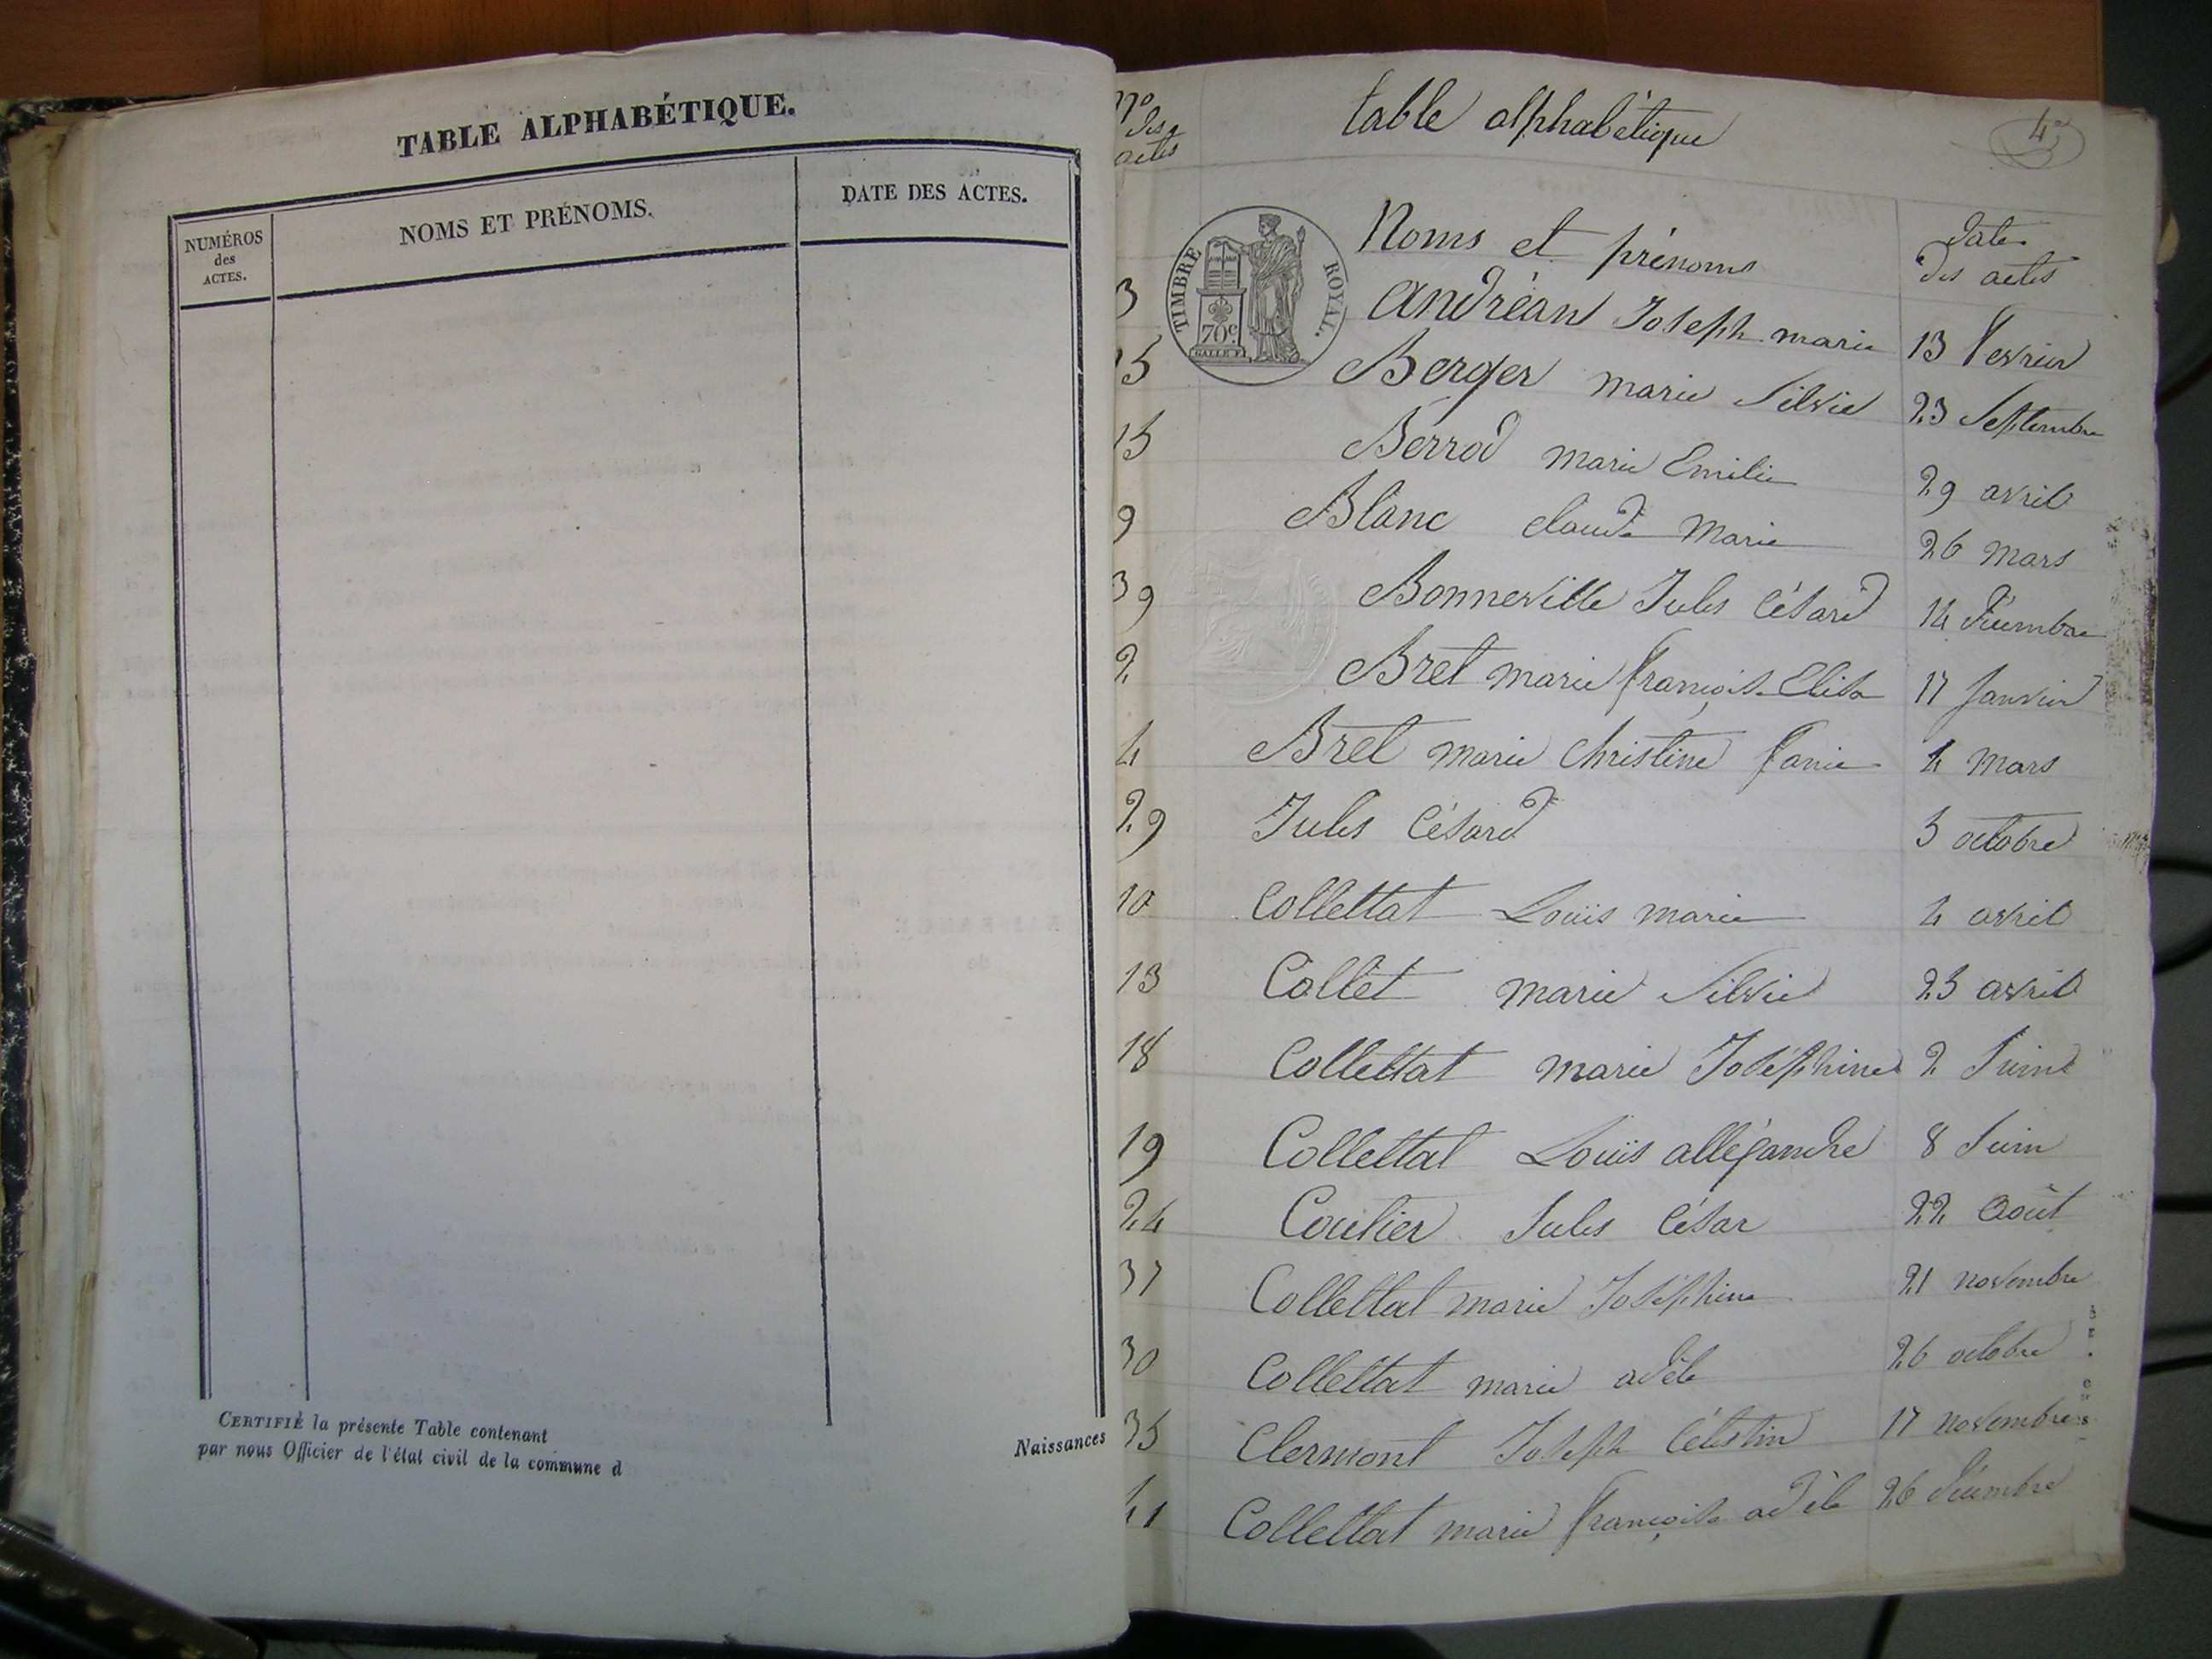 TABLE ALPHABÉTIQUE.
NUMÉROS
des
ACTES.
NOMS ET PRÉNOMS.
DATE DES ACTES.
CERTIFIÉ la présente Table contenant
par nous Officier de l'état civil de la commune d
Naissances
nº
des
actes
table alphabétique
TIMBRE ROYAL.
70c.
Noms et prénoms
date
des actes
3 andréan Joseph marie 13 fevrier
15 Berger marie Silvie 23 Septembre
15 Berrod marie Emilie 29 avril
9 Blanc claude Marie 26 mars
39 Bonneville Jules César 14 décembre
2 Bret marie françoise Elisa 17 janvier
4 Bret marie christine fanie 4 mars
29 Jules César 3 octobre
10 Collettat Louis marie 4 avril
13 Collet marie Silvie 23 avril
18 Collettat marie Joséphine 2 Juin
19 Collettat Louis alléxandre 8 Juin
24 Coutier Jules César 22 août
37 Collettat marie Joséphine 21 novembre
30 Collettat marie adèle 26 octobre
35 Clermont Joseph Célestin 17 novembre
41 Collettat marie françoise adèle 26 décembre